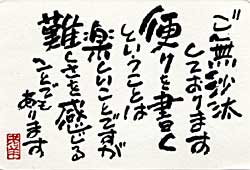 ご無沙汰
しております
便りを書く
ということは
楽しいことですが
難しさを感じる
ことでも
あります